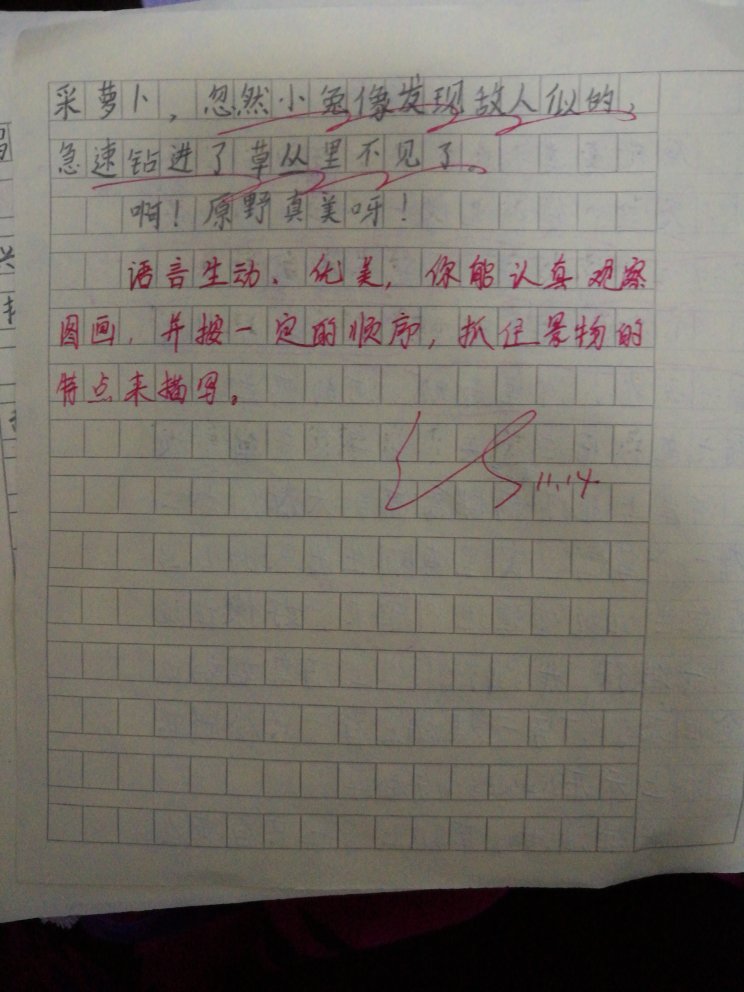 采萝卜，忽然小兔像发现敌人似的，
急速钻进了草从里不见了。
啊！原野真美呀！
语言生动、优美，你能认真观察
图画，并按一定的顺序，抓住景物的
特点来描写。
11.14